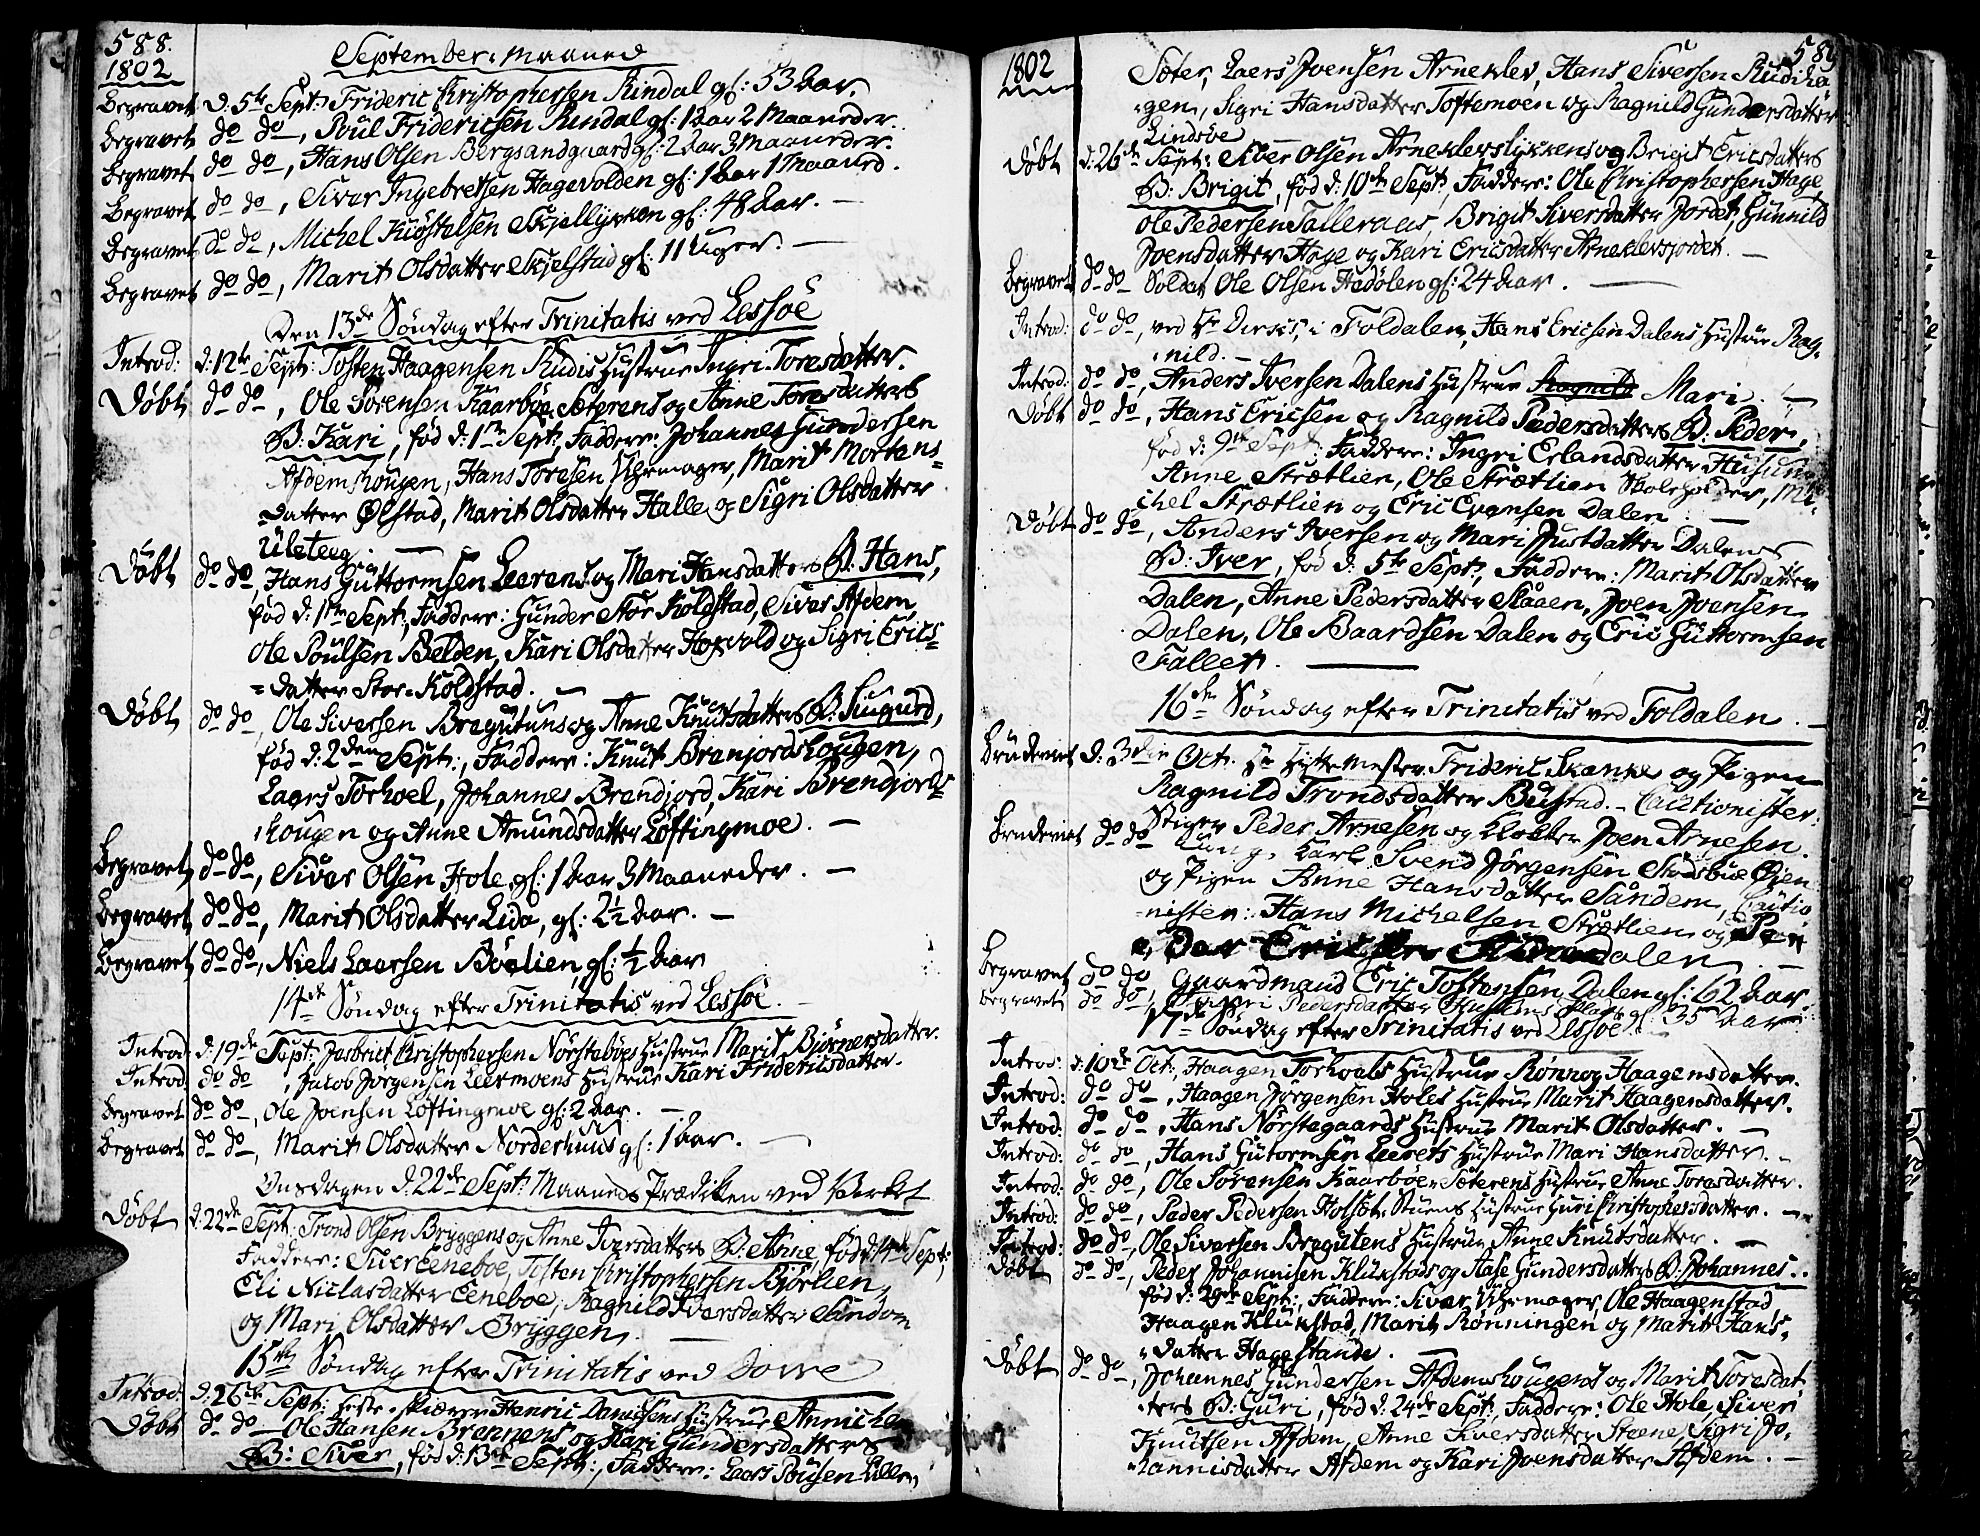 588.
1802
September Maaned
Begravet d: 5te Sept: Frideric Christophersen Rindal gl: 53 Aar.
Begravet do do, Poul Fridericsen Rindal gl: 1 Aar 2 Maaneder.
Begravet do do, Hans Olsen Bergsandgaard gl: 2 Aar 3 Maaneder.
Begravet do do, Siver Ingebretsen Hagevolden gl: 1 Aar 1 Maaned.
Begravet do do, Michel Kiøstelsen Skjellykken gl: 48 Aar. —
Begravet do do, Marit Olsdatter Skjelstad gl: 11 Uger. —
Den 13de Søndag efter Trinitatis ved Lessøe
Introd: d: 12te Sept: Tosten Haagensen Rudis Hustrue Ingri Toresdatter.
Døbt do do, Ole Sørensen Kaarbøe Sæterens og Anne Toresdatters
B: Kari, fød d: 1te Sept, Faddere: Johannes Gundersen
Afdemshougen, Hans Toresen Uhrmager, Marit Mortens=
=datter Ølstad, Marit Olsdatter Halle og Sigri Olsdatter
Uleteig. —
Døbt do do, Hans Guttormsen Leerens og Mari Hansdatters B: Hans,
fød d: 1te Sept, Faddere: Gunder Stor Koldstad, Siver Afdem,
Ole Poulsen Belden, Kari Olsdatter Hosvold og Sigri Erics=
=datter Stor=Koldstad. —
Døbt do do, Ole Siversen Bregutuns og Anne Knutsdatters B: Siugurd,
fød d: 2den Sept:, Faddere: Knut Brenjordshougen,
Laers Torhoel, Johannes Brendjord, Kari Brendjords=
hougen og Anne Amundsdatter Løftingmoe. —
Begravet do do, Siver Olsen Hole, gl: 1 Aar 3 Maaneder. —
Begravet do do, Marit Olsdatter Lida, gl: 2½ Aar. —
Begravet do do, Niels Laersen Bøelien, gl: ½ Aar
14de Søndag efter Trinitatis ved Lessøe. —
Introd d: 19de Sept: Christophersen Nørstebøes Hustrue Marit Biørnersdatter.
Introd do do, Jacob Jørgensen Leermoens Hustrue Kari Fridericsdatter.
Begravet do do, Ole Joensen Løftingmoe gl: 2 Aar. —
Begravet do do, Marit Olsdatter Norderhuus gl: 1 Aar. —
Onsdagen d: 22de Sept: Maaneds Prædiken ved Verket
Døbt d: 22de Sept: Trond Olsen Bryggens og Anne Iversdatters B: Anne, fød d: 14de Sept;
Faddere: Iver Eneboe, Tosten Christophersen Bjørlien,
Eli Niclasdatter Eneboe, Ragnild Iversdatter Sandom
og Mari Olsdatter Bryggen. —
15de Søndag efter Trinitatis ved Dovre
Introd: d: 26de Sept: Henric Danielsens Hustrue Anniche
Døbt do do Ole Hansen Brennens og Kari Gundersdatters
B: Siver, fød d: 13de Sept:, Faddere: Laers Poulsen Lille=
589
1802
Sæter, Laers Joensen Arneklev, Hans Siversen Rudiha=
=gen, Sigri Hansdatter Toftemoen og Ragnild Gundersdatter
Lindsøe —
Døbt d: 26de Sept: Siver Olsen Arneklevslykkens og Brigit Ericsdatters
B: Brigit, fød d: 10de Sept, Faddere: Ole Christophersen Hage,
Ole Pedersen Talleraas, Brigit Siversdatter Jordet, Gunnild
Joensdatter Hage og Kari Ericsdatter Arneklevsjordet. —
Begravet do do Soldat Ole Olsen Hadølen gl: 24 Aar. —
Introd: do do, ved i Foldalen, Hans Ericsen Dalens Hustrue Rag=
=nild. —
Introd: do do, Anders Iversen Dalens Hustrue Ragnild Mari. —
Døbt do do, Hans Ericsen og Ragnild Pedersdatters B: Peder,
fød d: 9de Sept: Faddere: Ingri Erlandsdatter Husum
Anne Strætlien, Ole Strætlien Skoleholder, Mi=
chel Strætlien og Eric Evensen Dalen. —
Døbt do do, Anders Iversen og Mari Justdatter Dalens
B: Iver, fød d: 5te Sept:, Faddere: Marit Olsdatter
Dalen, Anne Pedersdatter Slaaen, Joen Joensen
Dalen, Ole Baardsen Dalen og Eric Guttormsen
Fallet. —
16de Søndag efter Trinitatis ved Foldalen. —
Brudeviet d: 3die Oct. Hr Hyttemester Frideric Skanke og Pigen
Ragnild Trondsdatter Bustad. — Cautionister:
Stiger Peder Arnesen og Klokker Joen Arnesen.
Brudeviet do do Ung: Karl Svend Jørgensen Stadsbue Øien
og Pigen Anne Hansdatter Sandem, Cautio=
=nister: Hans Michelsen Strætlien og Pe=
=der Ericsen dalen. —
Begravet do do, Gaardmand Eric Tostensen Dalen gl: 62 Aar.
Begravet do do, Pedersdatter gl: 35 Aar
17de Søndag efter Trinitatis ved Lessøe. —
Introd: d: 10de Oct:, Haagen Torhoels Hustrue Rønnog Haagensdatter.
Introd: do do, Haagen Jørgensen Holes Hustrue Marit Haagensdatter.
Introd: do do, Hans Nørstegaards Hustrue Marit Olsdatter. —
Introd: do do, Hans Gutormsen Leerets Hustrue Mari Hansdatter. —
Introd: do do, Ole Sørensen Kaarbøe Sæterens Hustrue Anne Toresdatter.
Introd: do do, Peder Pedersen Holsæt Stuens Hustrue Guri Christophersdatter. —
Introd: do do, Ole Siversen Bregutens Hustrue Anne Knutsdatter. —
Døbt do do, Peder Johannisen Klukstads og Aase Gundersdatters B: Johannes.
fød d: 29de Sept:, Faddere: Siver Uhrmager, Ole Haagenstad,
Haagen Klukstad, Marit Rønningen og Marit Hans=
=datter Hagestande. —
Døbt do do, Johannes Gundersen Afdemshougens og Marit Toresdat=
=ters B: Guri, fød d: 24de Sept:, Faddere: Ole Hole, Siver
Knutsen Afdem, Anne Siversdatter Steene, Sigri Jo=
=hannisdatter Afdem og Kari Joensdatter Afdem. —